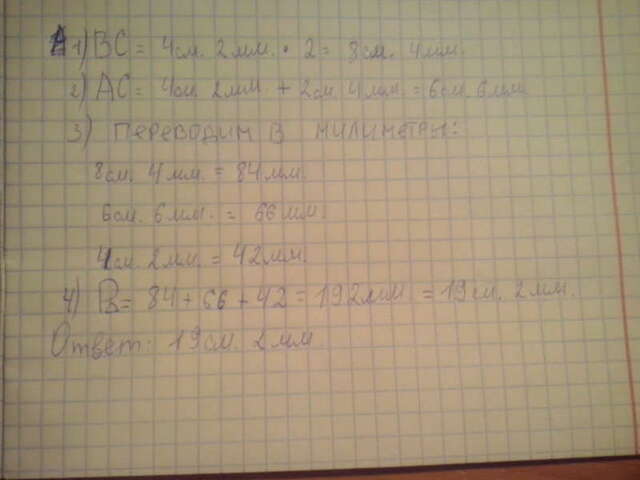 1) BC = 4см. 2мм. · 2 = 8см. 4мм.
2) AC = 4см 2мм. + 2см 4мм. = 6см. 6мм
3) ПЕРЕВОДИМ В МИЛИМЕТРЫ:
8см. 4мм. = 84мм.
6см. 6мм. = 66мм.
4см. 2мм. = 42мм.
4) P = 84 + 66 + 42 = 192мм = 19см. 2мм.
Ответ: 19см. 2мм